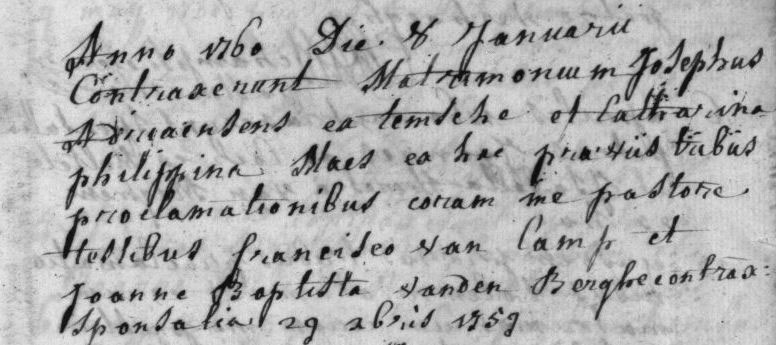 Anno 1760 Die 8 Januarii
Contraxerunt Matrimonium Josephus
ex temsche et Catharina
philippina Maes ex hac praeviis tribus
proclamationibus coram me pastore
testibus francisco van Camp et
Joanne Baptista vanden Berghe contrax:
sponsalia 29 xbris 1759